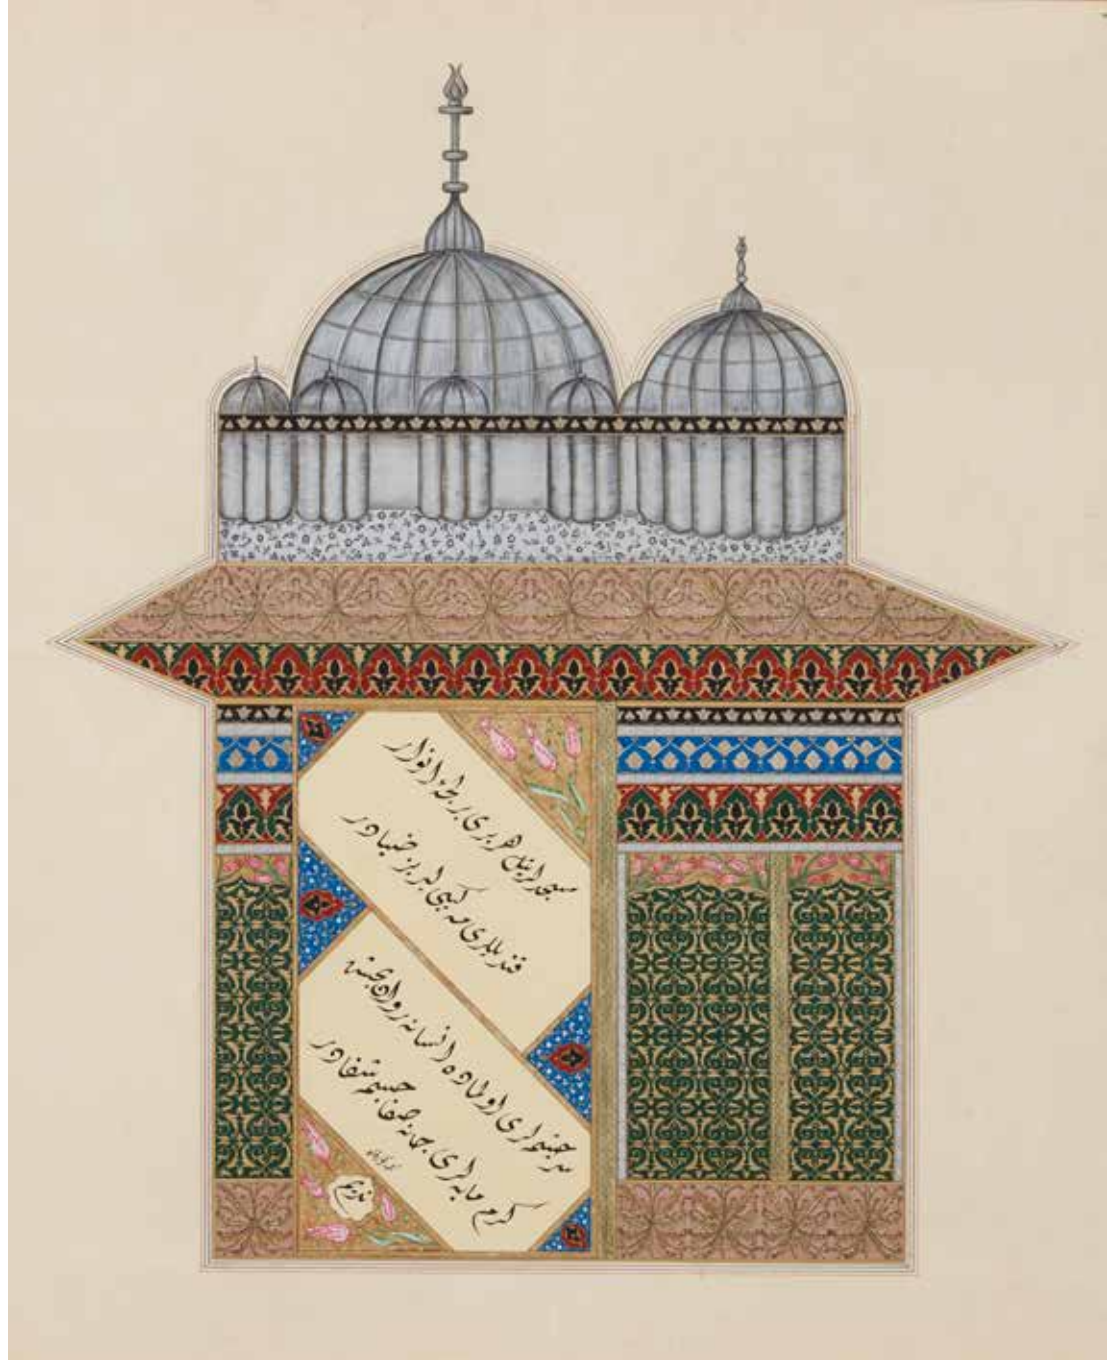 مسجدلرینك هر بری بر لجهٔ انوار
قندیللری مه كبی لبریز ضیادر
سرچشمه‌لری اولماده انسانه روان بخش
كرمابه‌لری جانه صفا جسمه شفادر
نديم